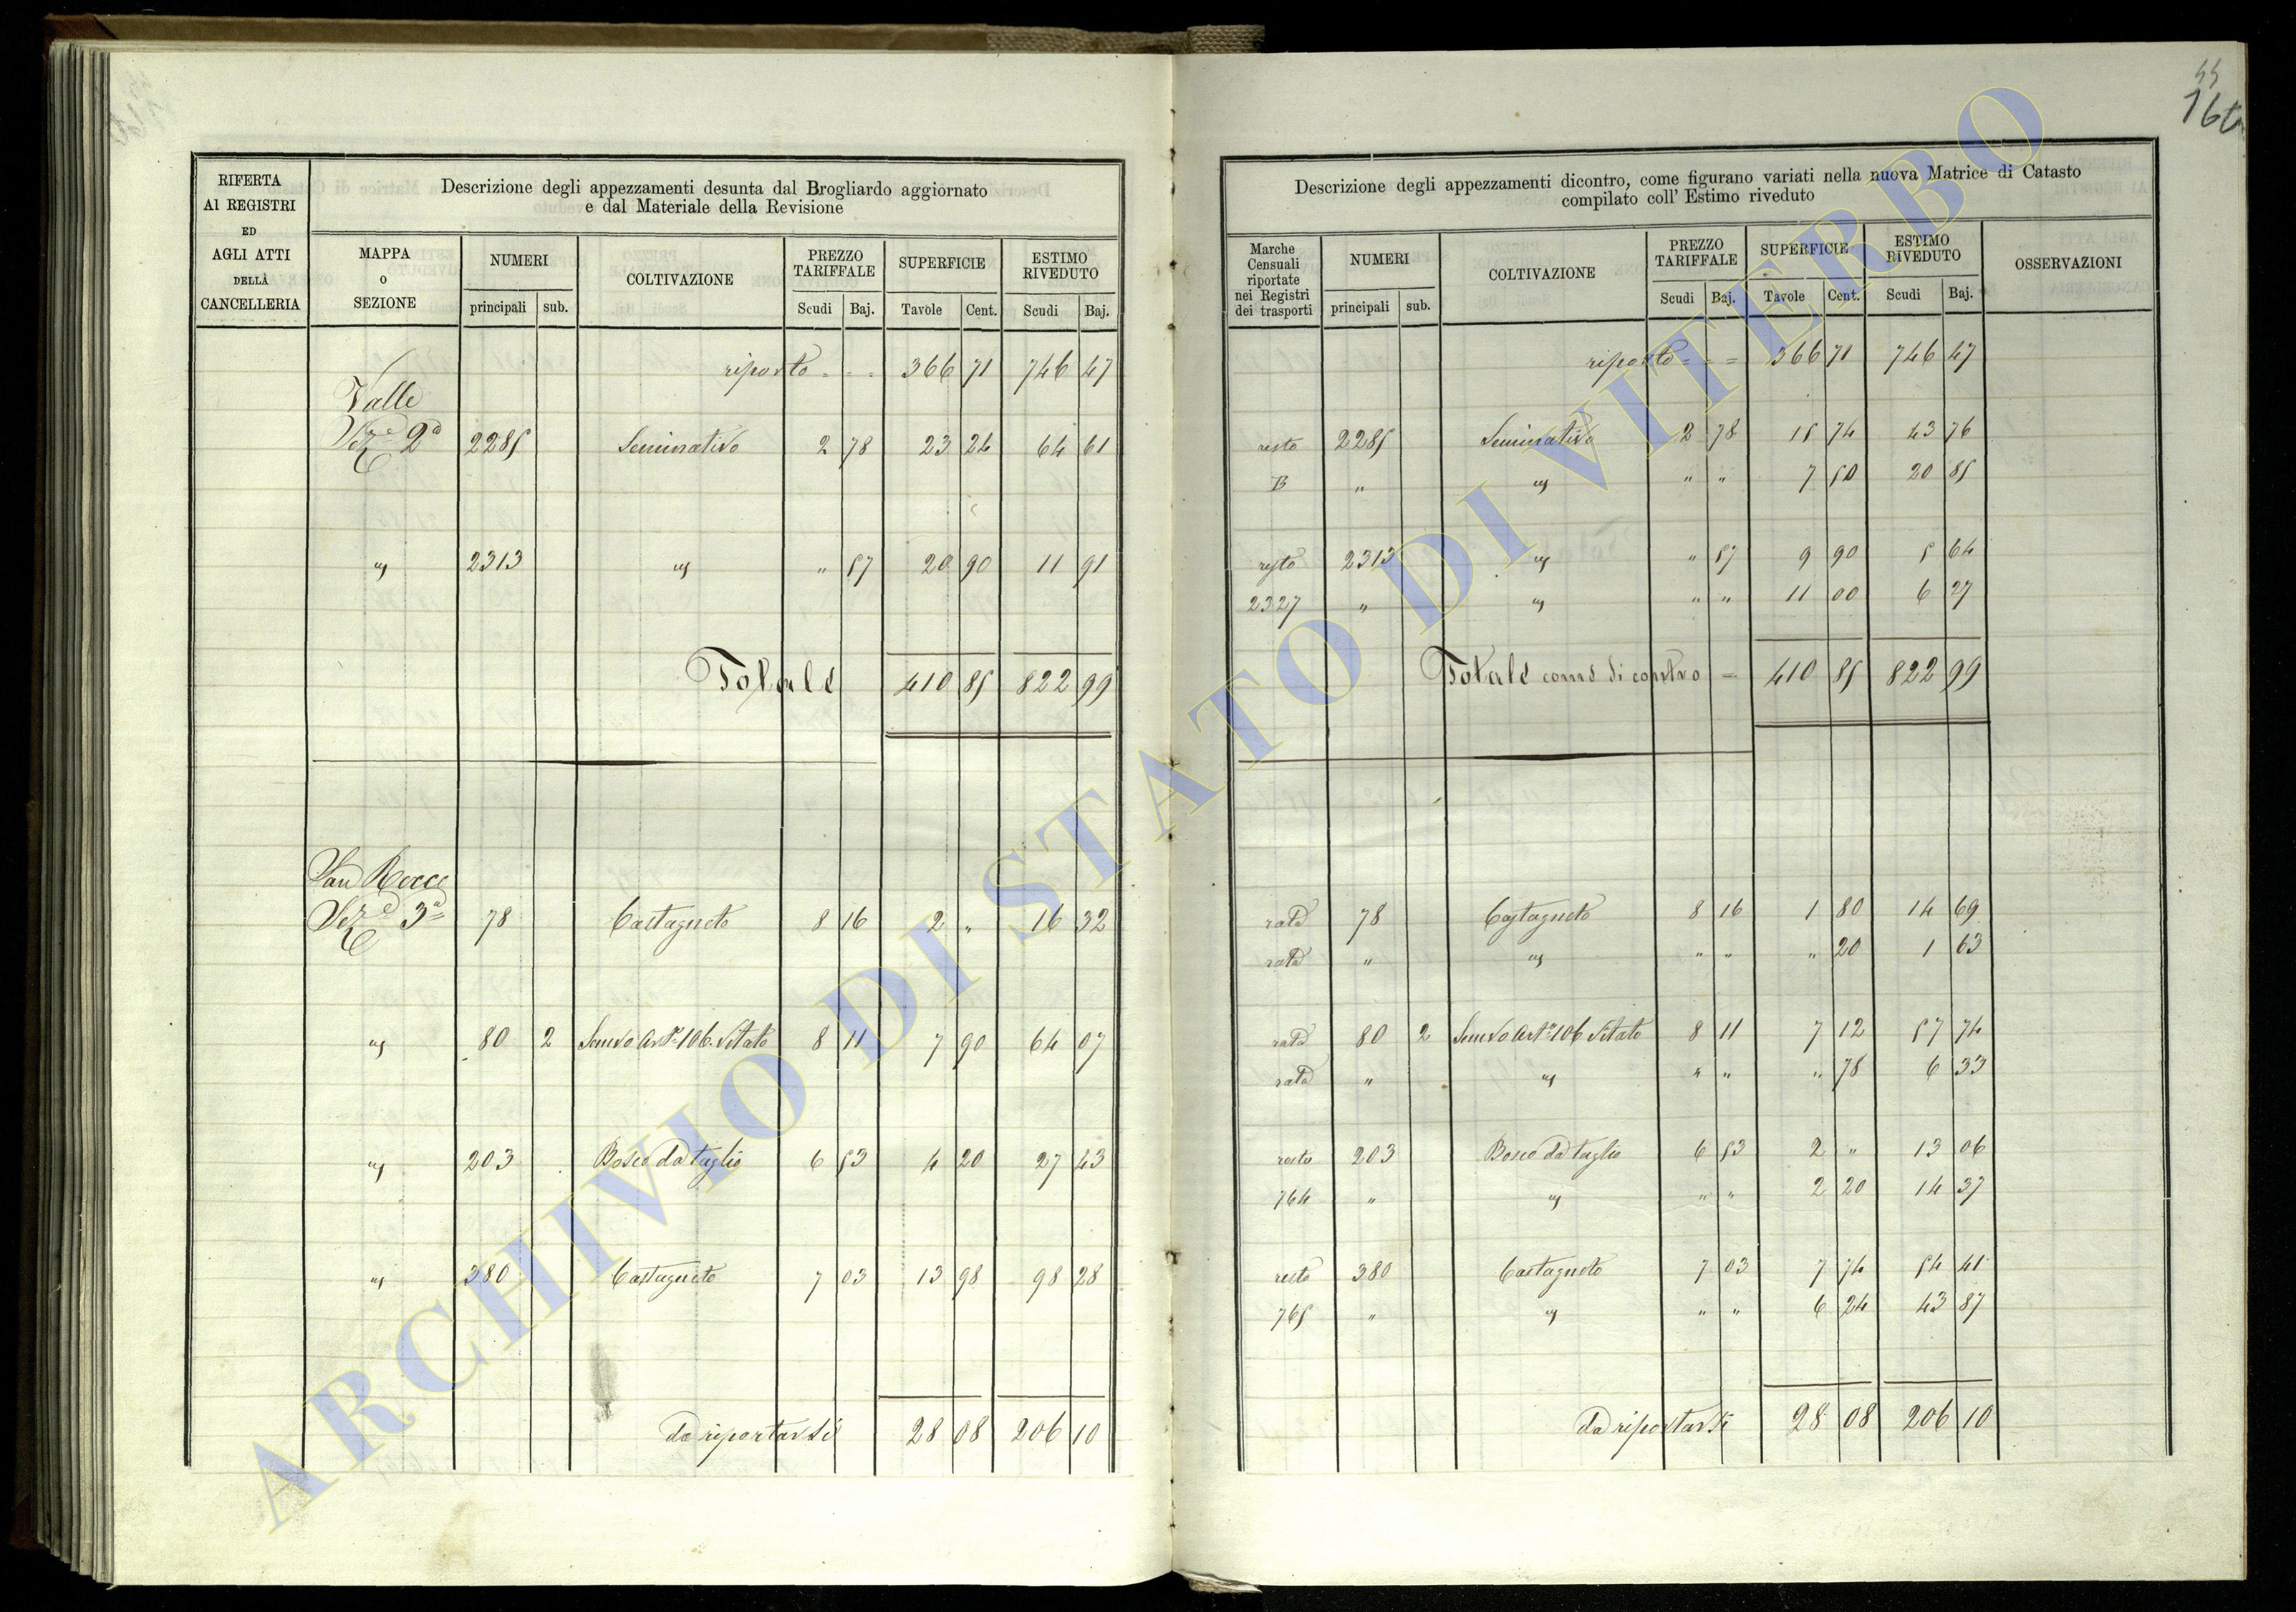 RIFERTA
AI REGISTRI
ED
AGLI ATTI
DELLA
CANCELLERIA
Descrizione degli appezzamenti desunta dal Brogliardo aggiornato
e dal Materiale della Revisione
MAPPA
o
SEZIONE
NUMERI
principali sub.
COLTIVAZIONE
PREZZO
TARIFFALE
Scudi Baj.
SUPERFICIE
Tavole Cent.
ESTIMO
RIVEDUTO
Scudi Baj.
riporto = = = 366 71 746 47
Valle
Sez.e 2a 2285 Seminativo 2 78 23 24 64 61
" 2313 " " 57 20 90 11 91
Totale 410 85 822 99
San Rocco
Sez.e 3a 78 Castagneto 8 16 2 " 16 32
" 80 2 Semvo Arto 106 Vitato 8 11 7 90 64 07
" 203 Bosco da taglio 6 53 4 20 27 43
" 380 Castagneto 7 03 13 98 98 28
da riportarsi 28 08 206 10
55
164
Descrizione degli appezzamenti dicontro, come figurano variati nella nuova Matrice di Catasto
compilato coll' Estimo riveduto
Marche
Censuali
riportate
nei Registri
dei trasporti
NUMERI
principali sub.
COLTIVAZIONE
PREZZO
TARIFFALE
Scudi Baj.
SUPERFICIE
Tavole Cent.
ESTIMO
RIVEDUTO
Scudi Baj.
OSSERVAZIONI
riporto = = = 366 71 746 47
resto 2285 Seminativo 2 78 15 74 43 76
B " " " " 7 50 20 85
resto 2313 " " 57 9 90 5 64
2327 " " " " 11 00 6 27
Totale come di contro = 410 85 822 99
rata 78 Castagneto 8 16 1 80 14 69
rata " " " " " 20 1 63
rata 80 2 Semvo Arto 106 Vitato 8 11 7 12 57 74
rata " " " " " 78 6 33
resto 203 Bosco da taglio 6 53 2 " 13 06
764 " " " " 2 20 14 37
resto 380 Castagneto 7 03 7 74 54 41
765 " " " " 6 24 43 87
da riportarsi 28 08 206 10
ARCHIVIO DI STATO DI VITERBO